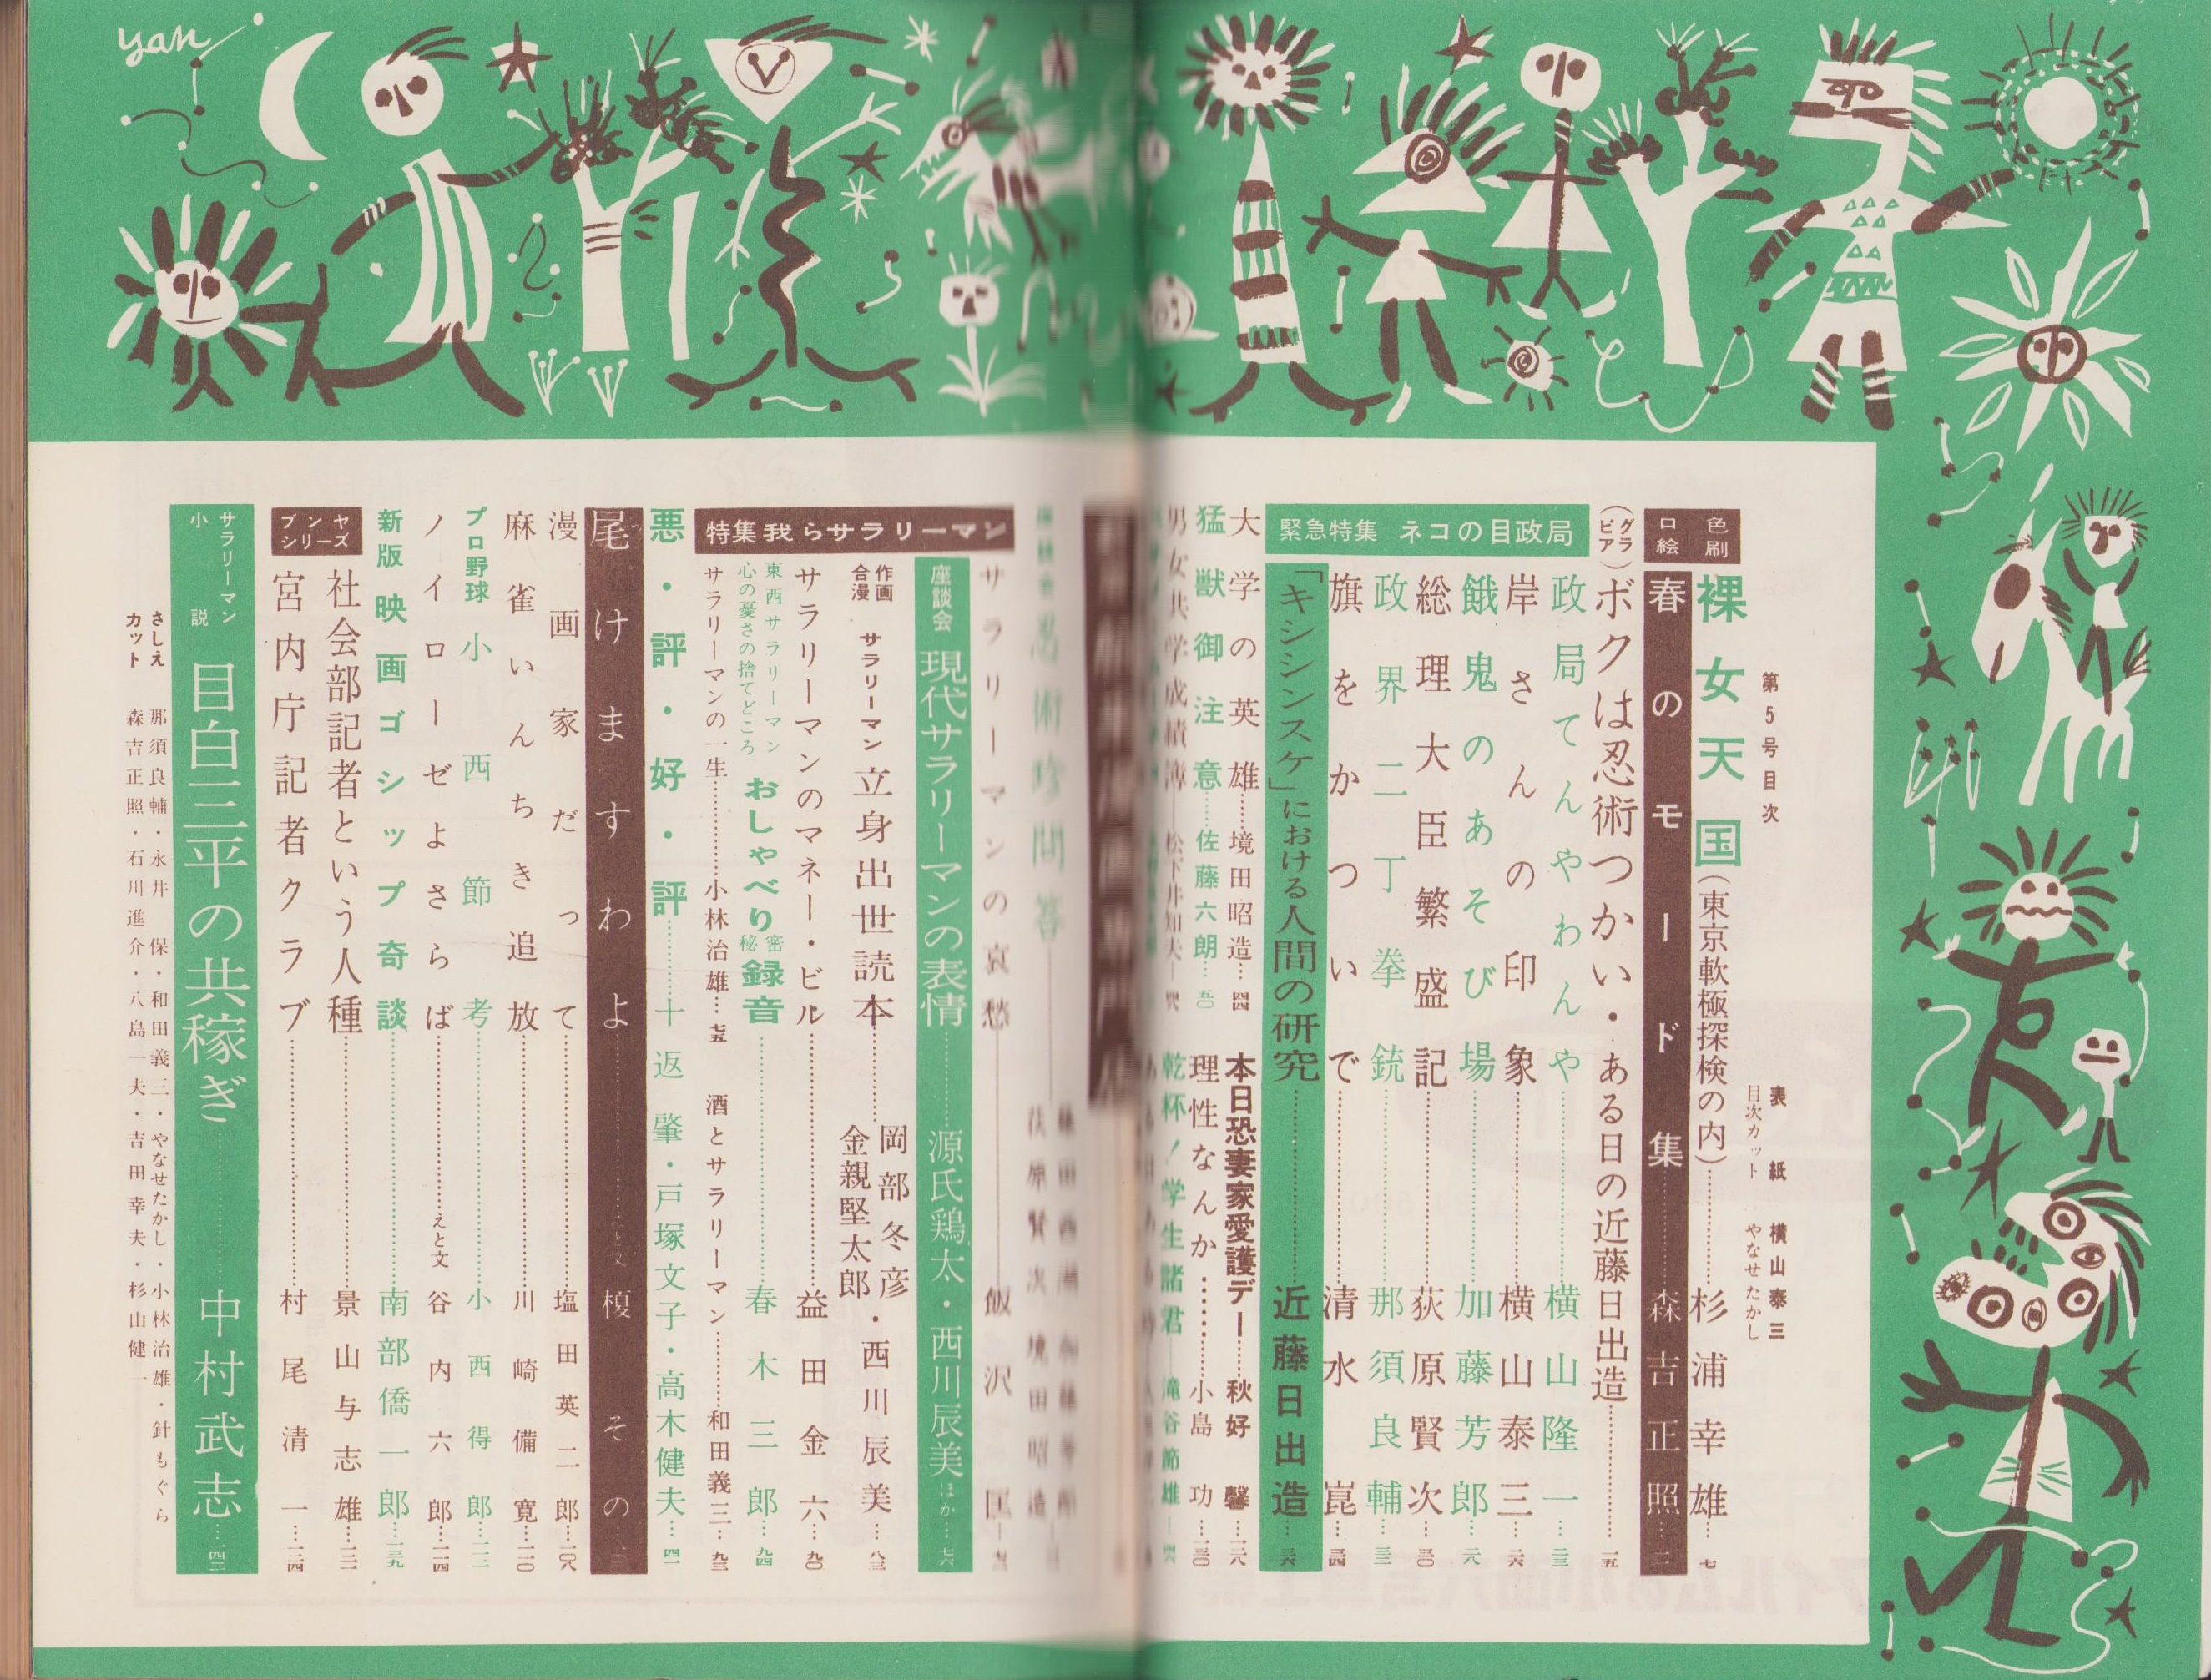 第5号目次
表紙 横山泰三
目次カット やなせたかし
色刷口絵
裸女天国(東京軟極探検の内)……杉浦幸雄…七
春のモード集……森吉正照
(グラビア)ボクは忍術つかい・ある日の近藤日出造……一五
緊急特集 ネコの目政局
政局てんやわんや……横山隆一…二三
岸さんの印象……横山泰三…二六
餓鬼のあそび場……加藤芳郎…二八
総理大臣繁盛記……荻原賢次…三〇
政界二丁拳銃……那須良輔…三二
旗をかついで……清水崑…三四
「キシシンスケ」における人間の研究……近藤日出造…三六
大学の英雄……境田昭造…四四
本日恐妻家愛護デー……秋好馨…三八
猛獣御注意……佐藤六朗…五〇
理性なんか……小島功…一三〇
男女共学成績簿―松下井知夫
乾杯!学生諸君―滝谷節雄
忍術珍問答
荻原賢次 境田昭造
特集 我らサラリーマン
サラリーマンの哀愁―飯沢匡
座談会 現代サラリーマンの表情……源氏鶏太・西川辰美 ほか…七六
合作漫画 サラリーマン立身出世読本……岡部冬彦・金親堅太郎・西川辰美…八三
サラリーマンのマネー・ビル……益田金六…九〇
東西サラリーマン心の憂さの捨てどころ おしゃべり秘密録音……春木三郎…九四
サラリーマンの一生……小林治雄…七五
酒とサラリーマン……和田義三…九三
悪・評・好・評……十返肇・戸塚文子・高木健夫…四一
尾けますわよ……えと文 榎そのの
漫画家だって……塩田英二郎…一〇八
麻雀いんちき追放……川崎備寛…一一〇
プロ野球 小西節考……小西得郎…一一二
ノイローゼよさらば……えと文 谷内六郎…一一四
新版 映画ゴシップ奇談……南部僑一郎…一三九
ブンヤシリーズ
社会部記者という人種……景山与志雄…一二一
宮内庁記者クラブ……村尾清一…一二四
サラリーマン小説 目白三平の共稼ぎ……中村武志…一四三
さしえ カット
那須良輔・永井保・和田義三・やなせたかし・小林治雄・針もぐら
森吉正照・石川進介・八島一夫・吉田幸夫・杉山健一
yan